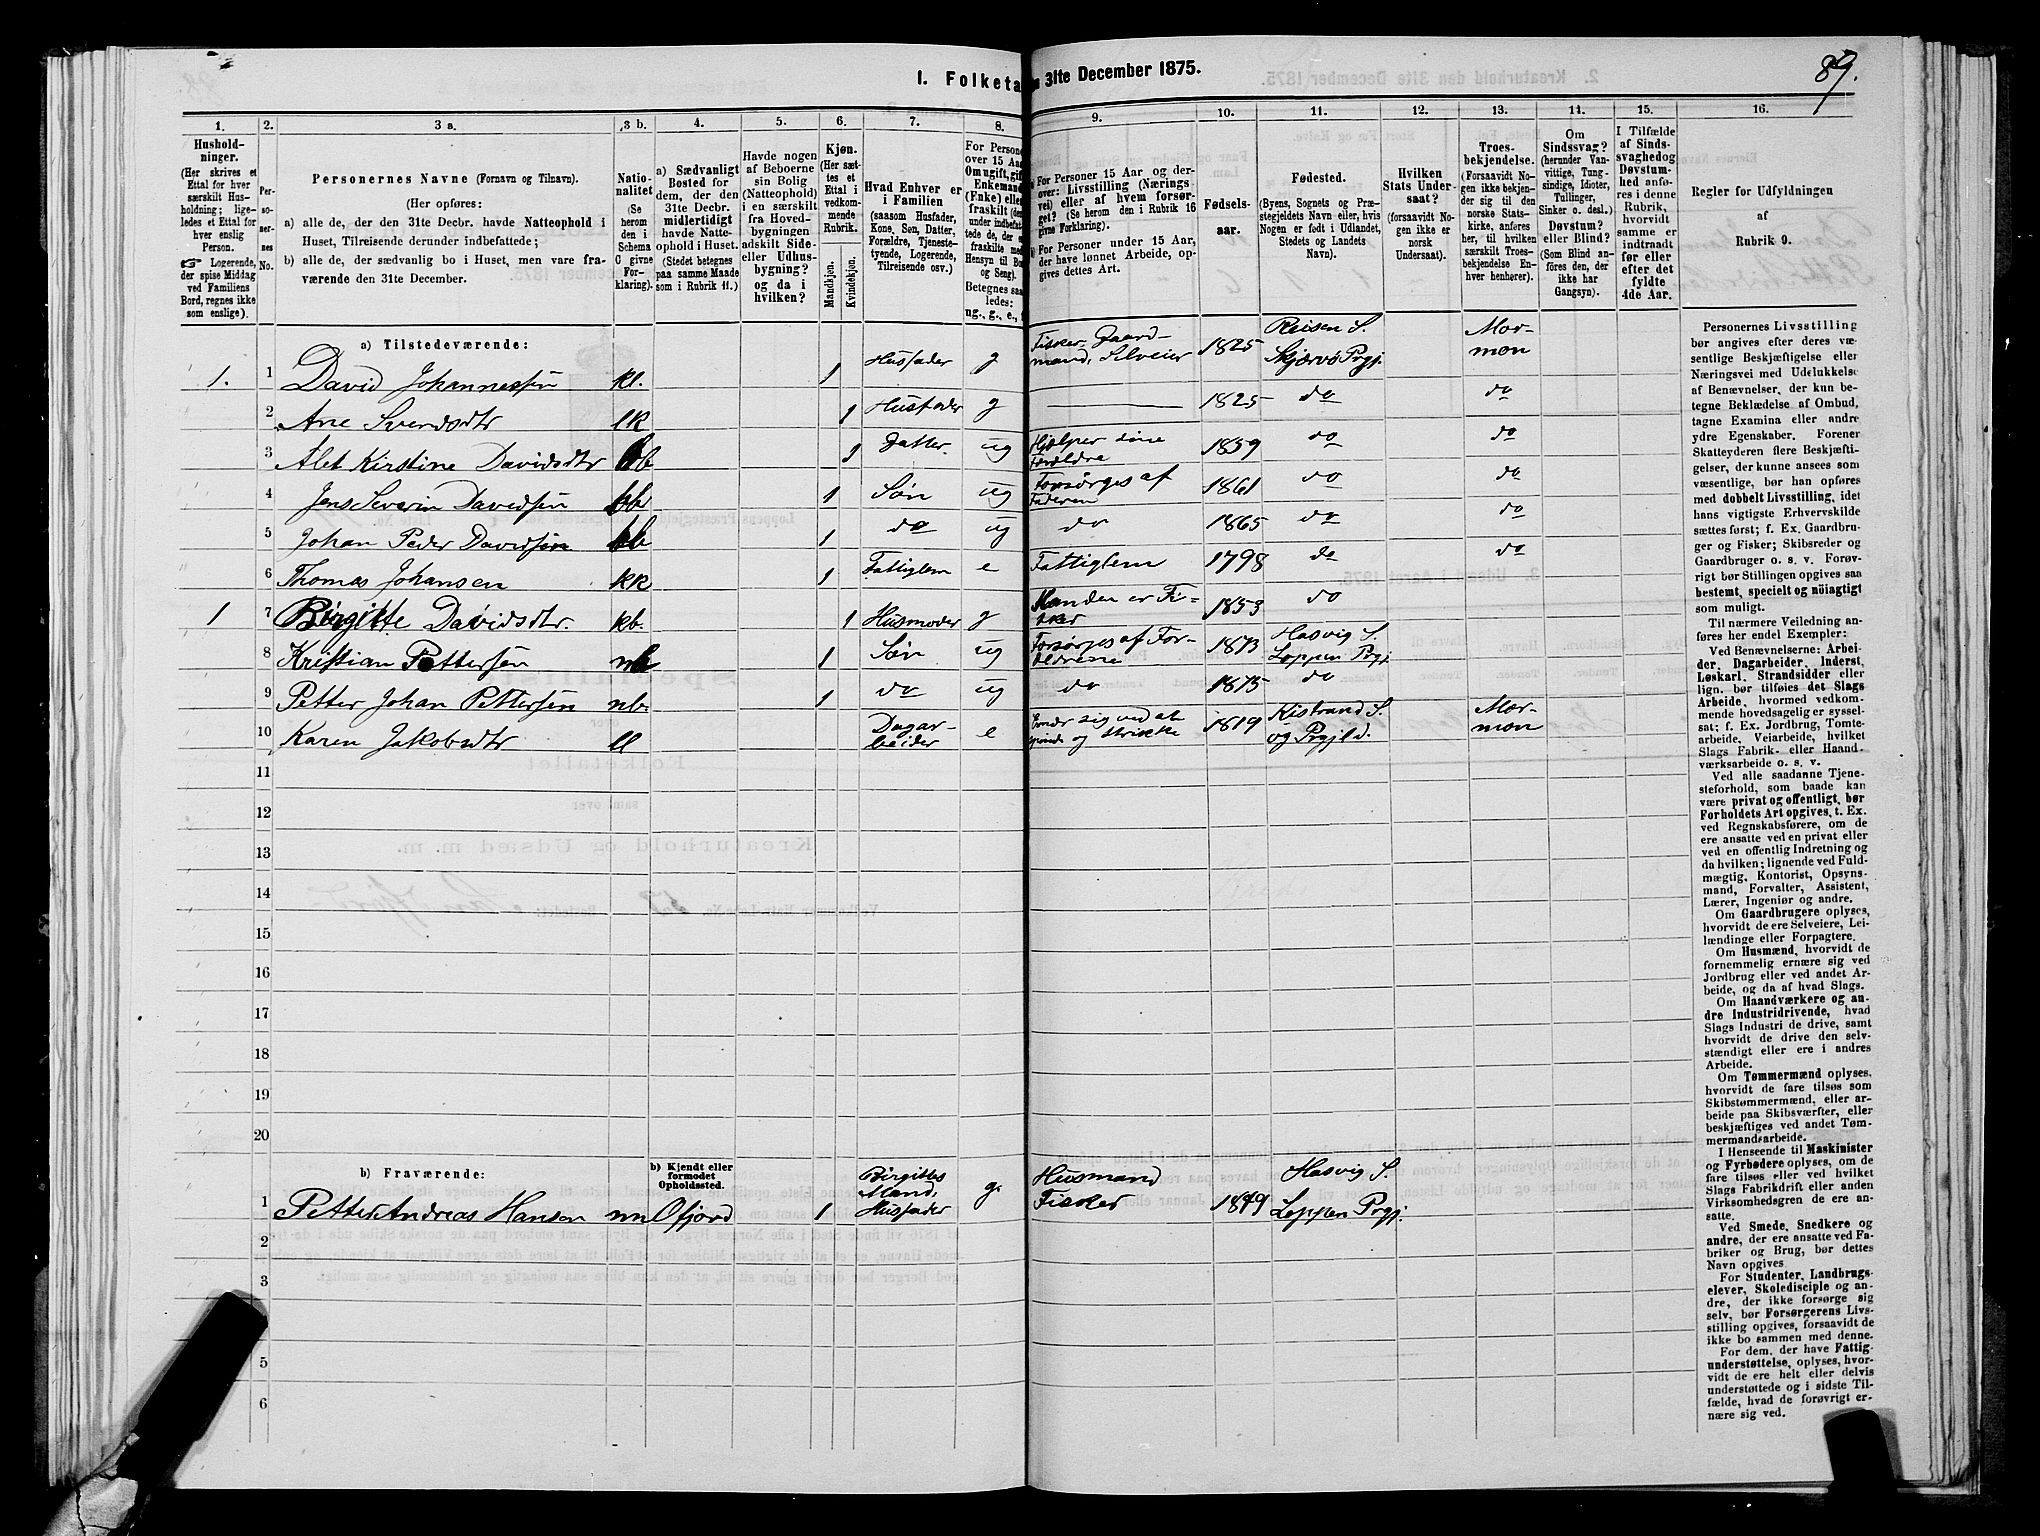 89.
I. Folketa
n 31te December 1875.
1.
2.
3 a.
3 b.
4.
5.
6.
7.
8.
9.
10.
11.
12.
13.
14.
15.
16.
Hushold-
ninger.
(Her skrives et
Ettal for hver
særskilt Hus-
holdning; lige-
ledes et Ettal for
hver enslig
Person.
☞ Logerende,
der spise Middag
ved Familiens
Bord, regnes ikke
som enslige).
Per-
so-
ner-
nes
No.
Personernes Navne (Fornavn og Tilnavn).
(Her opføres:
a) alle de, der den 31te Decbr. havde Natteophold i
Huset, Tilreisende derunder indbefattede;
b) alle de, der sædvanlig bo i Huset, men vare fra-
værende den 31te December.
Natio-
nalitet
(Se
herom
den i
Schema
C givne
For-
klaring).
a) Sædvanligt
Bosted for
dem, der den
31te Decbr.
midlertidigt
havde Natte-
ophold i Huset.
(Stedet betegnes
paa samme Maade
som i Rubrik 11.)
Havde nogen
af Beboerne
sin Bolig
(Natteophold)
i en særskilt
fra Hoved-
bygningen
adskilt Side-
eller Udhus-
bygning?
og da i
hvilken?
Kjøn.
(Her sæt-
tes et
Ettal i
vedkom-
mende
Rubrik.
Mandkjøn.
Kvindekjøn.
Hvad Enhver er
i Familien
(saasom Husfader,
Kone, Søn, Datter,
Forældre, Tjeneste-
tyende, Logerende,
Tilreisende osv.)
For Personer
over 15 Aar
Om ugift, gift
Enkemand
(Enke) eller
fraskilt (der
under indbefat-
tede de, der e
fraskilte m
Hensyn til Bor
og Seng).
Betegnes saa-
ledes:
ug., g., e., f
a) For Personer 15 Aar og der-
over: Livsstilling (Nærings-
vei) eller af hvem forsør-
get? (Se herom i Rubrik 16
givne Forklaring).
b) For Personer under 15 Aar,
der have lønnet Arbeide, op-
gives dettes Art.
Fødsels-
aar.
Fødested.
(Byens, Sognets og Præ-
stegjeldets Navn eller, hvis
Nogen er født i Udlandet,
Stedets og Landets
Navn).
Hvilken
Stats Under-
saat?
(forsaavidt No-
gen ikke er
norsk
Undersaat).
Troes-
bekjendelse.
(Forsaavidt No-
gen ikke bekjen-
der sig til den
norske Stats-
kirke, anføres
her, til hvilken
særskilt Troes-
bekjendelse En-
hver henhører).
Om
Sindssvag?
(herunder Van-
vittige, Tung-
sindige, Idioter,
Tullinger,
Sinker o. desl.)
Døvstum?
eller Blind?
(Som Blind an-
føres den, der
ikke har
Gangsyn).
I Tilfælde
af Sinds-
svaghed og
Døvstum-
hed anfø-
res i denne
Rubrik,
hvorvidt
samme er
indtraadt
før eller
efter det
fyldte
4de Aar.
Regler for Udfyldningen
af
Rubrik 9.
a) Tilstedeværende:
1. 1 David Johannessøn kl. 1 Husfader g Fisker, Gaard-
mand, Selveier 1825 Reisen S.
Skjervø Prgj. Mor-
mon
2 Ane Svendsdtr lk 1 Husfader g 1825 do do
3 Alet Kirstine Davidsdtr bb 1 Datter. ug Hjælper sine
Forældre 1859 do do
4 Jens Severin Davidsøn bb 1 Søn ug Forsørges af
Faderen 1861 do do
5 Johan Peder Davidsøn bb 1 do ug do 1865 do do
6 Thomas Johansen kk 1 Fattiglem e Fattiglem 1798 do do
1 7 Birgitte Davidsdtr. kb. 1 Husmoder g Manden er Fi-
sker 1853 do
8 Kristian Pettersen nb 1 Søn ug Forsørges af For-
ældrene 1873 Hasvig S.
Loppen Prgj
9 Petter Johan Pettersen nb. 1 do ug do 1875 do
10 Karen Jakobsdtr ll Dagar-
beider e Ernær sig ved at
spinde og strikke 1819 Kistrand S.
og Prgjld. Mor-
mon
11
12
13
14
15
16
17
18
19
20
b) Fraværende:
b) Kjendt eller
formodet
Opholdssted.
1 Petter Andreas Hansen nn Øfjord 1 Birgittes
Mand,
Husfader g. Husmand
Fisker 1849 Hasvig S.
Loppen Prgj.
2
3
4
5
6
Personernes Livsstilling
bør angives efter deres væ-
sentlige Beskjæftigelse eller
Næringsvei med Udelukkelse
af Benævnelser, der kun be-
tegne Beklædelse af Ombud,
tagne Examina eller andre
ydre Egenskaber. Forener
Skatteyderen flere Beskjæfti-
gelser, der kunne ansees som
væsentlige, bør han opføres
med dobbelt Livsstilling, idet
hans vigtigste Erhvervskilde
sættes først; f. Ex. Gaardbru-
ger og Fisker; Skibsreder og
Gaardbruger o. s. v. Forøv-
rigt bør Stillingen opgives saa
bestemt, specielt og nøiagtigt
som muligt.
Til nærmere Veiledning an-
føres her endel Exempler:
Ved Benævnelserne: Arbei-
der, Dagarbeider, Inderst,
Løskarl, Strandsidder eller
lign. bør tilføies det Slags
Arbeide, hvormed vedkom-
mende hovedsagelig er syssel-
sat; f. Ex. Jordbrug, Tomte-
arbeide, Veiarbeide, hvilket
Slags Fabrik- eller Haand-
værksarbeide o. s. v.
Ved alle saadanne Tjene-
steforhold, som baade kan
være privat og offentligt, bør
Forholdets Art opgives, t. Ex.
ved Regnskabsførere, om de
ere ansatte ved en privat eller
ved en offentlig Indretning og
da hvilken; lignende ved Fuld-
mægtig, Kontorist, Opsyns-
mand, Forvalter, Assistent,
Lærer, Ingeniør og andre.
Om Gaardbrugere oplyses,
hvorvidt de ere Selveiere, Lei-
lændinge eller Forpagtere.
Om Husmænd, hvorvidt de
fornemmelig ernære sig ved
Jordbrug eller ved andet Ar-
beide, og da af hvad Slags.
Om Haandværkere og an-
dre Industridrivende, hvad
Slags Industri de drive, samt
hvorvidt de drive den selv-
stændigt eller ere i andres
Arbeide.
Om Tømmermænd oplyses,
hvorvidt de fare tilsøs som
Skibstømmermænd, eller ar-
beide paa Skibsværfter, eller
beskjæftiges ved andet Tøm-
mermandsarbeide.
I Henseende til Maskinister
og Fyrbødere oplyses, om de
fare tilsøs eller ved hvilket
Slags Fabrikdrift eller anden
Virksomhedsgren de ere an-
satte.
Ved Smede, Snedkere og
andre, der ere ansatte ved Fa-
briker og Brug, bør dettes
Navn opgives.
For Studenter, Landbrugs-
elever, Skoledisciple og an-
dre, der ikke forsørge sig
selv, bør Forsørgerens Livs-
stilling opgives, forsaavidt de
ikke bo sammen med denne.
For dem, der have Fattig-
understøttelse, oplyses, hvor-
vidt de ere helt eller delvis
understøttede og i sidste Til-
fælde, hvad de forøvrigt er-
nære sig ved.